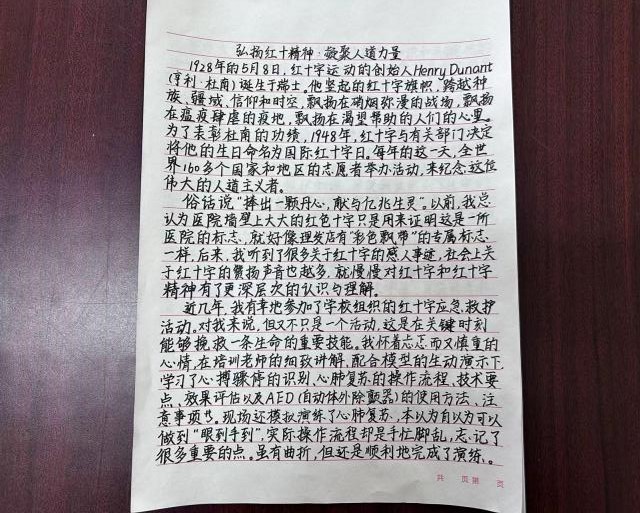 弘扬红十精神·凝聚人道力量
1928年的5月8日，红十字运动的创始人Henry Dunant
(亨利·杜南)诞生于瑞士。他竖起的红十字旗帜，跨越种
族、疆域、信仰和时空，飘扬在硝烟弥漫的战场，飘扬
在瘟疫肆虐的疫地，飘扬在渴望帮助的人们的心里。
为了表彰杜南的功绩，1948年，红十字与有关部门决定
将他的生日命名为国际红十字日。每年的这一天，全世
界160多个国家和地区的志愿者举办活动，来纪念这位
伟大的人道主义者。
俗话说“捧出一颗丹心，献与亿兆生灵”。以前，我总
认为医院墙壁上大大的红色十字只是用来证明这是一所
医院的标志，就好像理发店有“彩色飘带”的专属标志
一样，后来，我听到了很多关于红十字的感人事迹，社会上关
于红十字的赞扬声音也越多，就慢慢对红十字和红十字
精神有了更深层次的认识与理解。
近几年，我有幸地参加了学校组织的红十字应急救护
活动。对我来说，但又不只是一个活动，这是在关键时刻
能够挽救一条生命的重要技能。我怀着忐忑而又慎重的
心情，在培训老师的细致讲解，配合模型的生动演示下
学习了心搏骤停的识别、心肺复苏的操作流程、技术要
点、效果评估以及AED(自动体外除颤器)的使用方法、注
意事项等。现场还模拟演练了心肺复苏，本以为自以为可以
做到“眼到手到”，实际操作流程却是手忙脚乱，忘记了
很多重要的点。虽有曲折，但还是顺利地完成了演练。
共 页第 页